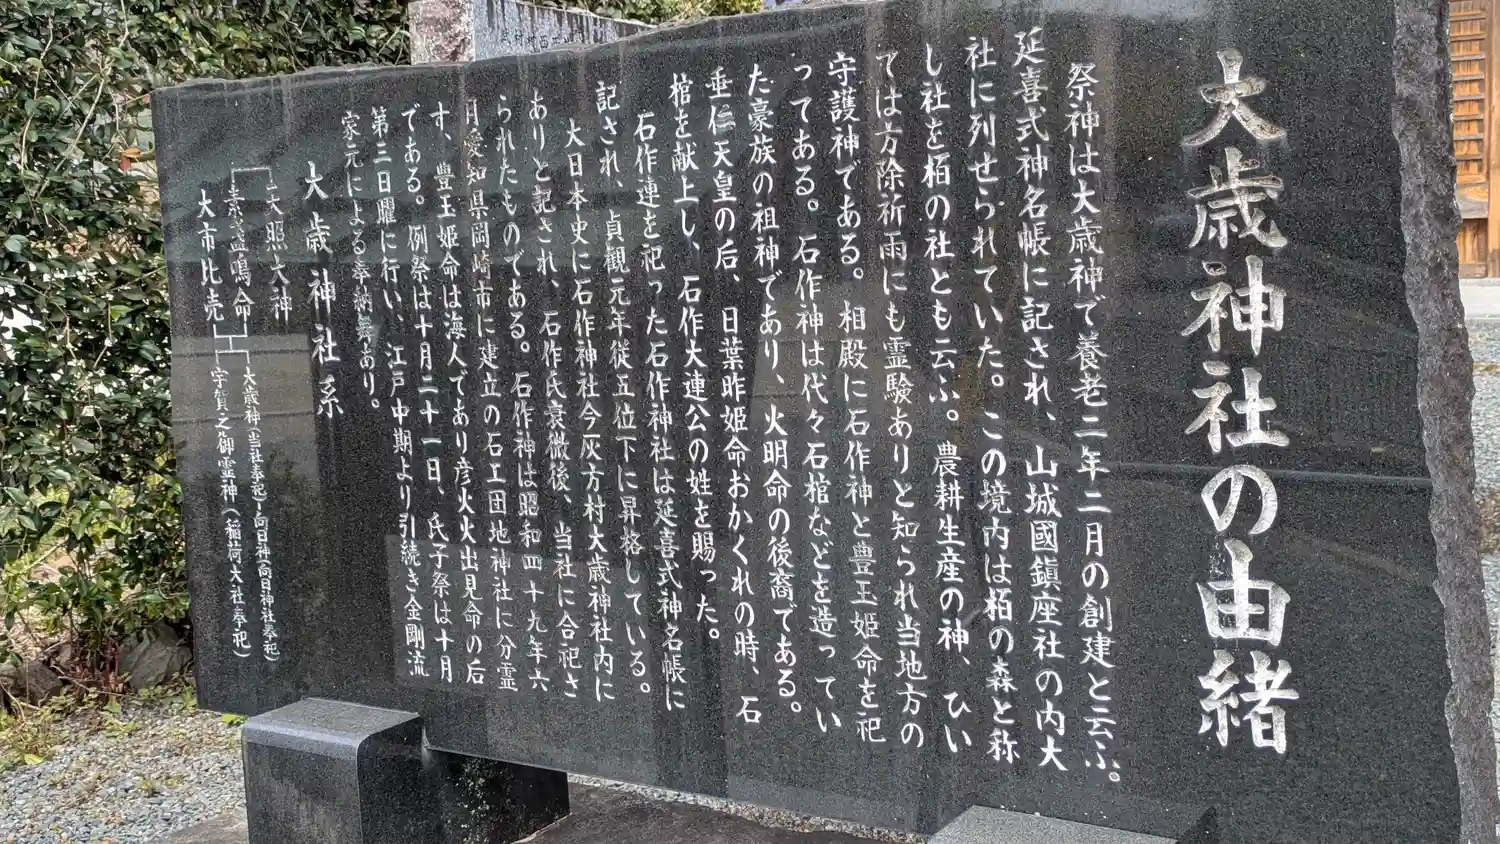 大歳神社の由緒
祭神は大歳神で養老二年二月の創建と云ふ。
延喜式神名帳に記され、山城國鎮座社の内大
社に列せられていた。この境内は栢の森と称
し社を栢の社とも云ふ。農耕生産の神、ひい
ては方除祈雨にも霊験ありと知られ当地方の
守護神である。相殿に石作神と豊玉姫命を祀
ってある。石作神は代々石棺などを造ってい
た豪族の祖神であり、火明命の後裔である。
垂仁天皇の后、日葉昨姫命おかくれの時、石
棺を献上し、石作大連公の姓を賜った。
石作連を祀った石作神社は延喜式神名帳に
記され、貞観元年従五位下に昇格している。
大日本史に石作神社今灰方村大歳神社内に
ありと記され、石作氏衰微後、当社に合祀さ
られたものである。石作神は昭和四十九年六
月愛知県岡崎市に建立の石工団地神社に分霊
す、豊玉姫命は海人であり彦火火出見命の后
である。例祭は十月二十一日、氏子祭は十月
第三日曜に行い、江戸中期より引続き金剛流
家元による奉納舞あり。
大歳神社系
天照大神
素盞嗚命
大市比売
大歳神(当社奉祀)向日神(向日神社奉祀)
宇賀之御霊神(稲荷大社奉祀)